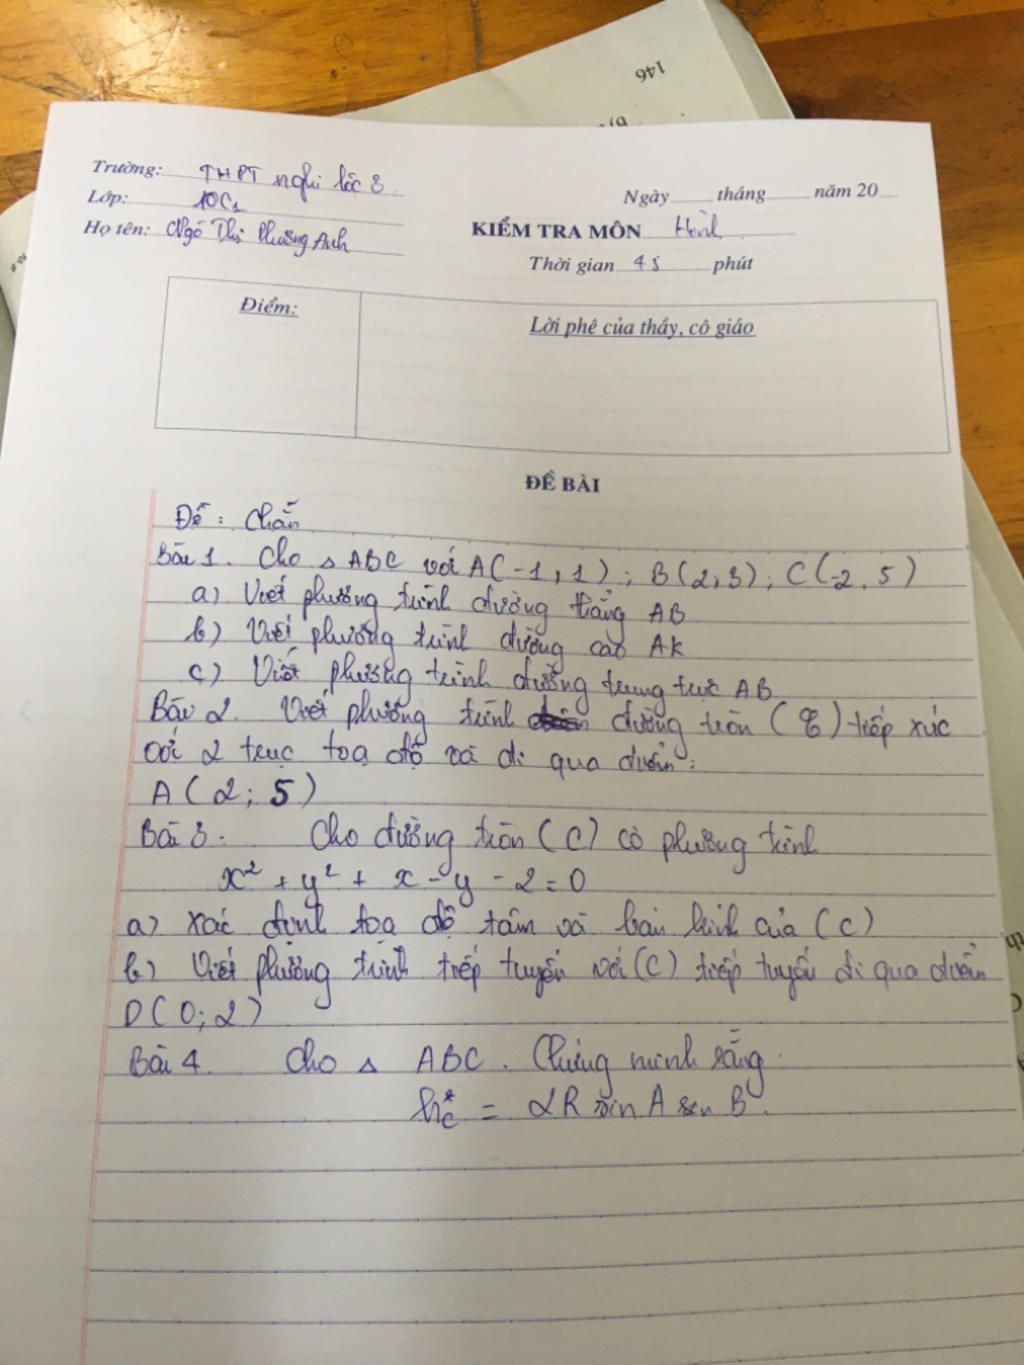 146
Trường: THPT nghi lộc 3
Lớp: 10C1
Họ tên: Ngô Thị Phương Anh
Ngày tháng năm 20
KIỂM TRA MÔN Hình
Thời gian 45 phút
Điểm:
Lời phê của thầy, cô giáo
ĐỀ BÀI
Đề: Chẵn
Bài 1. Cho △ ABC với A(-1,1); B(2,3); C(-2,5)
a) Viết phương trình đường thẳng AB
b) Viết phương trình đường cao AK
c) Viết phương trình đường trung trực AB
Bài 2. Viết phương trình đường tròn (C) tiếp xúc
với 2 trục toạ độ và đi qua điểm:
A(2;5)
Bài 3: Cho đường tròn (C) có phương trình
x² + y² + x - y - 2 = 0
a) xác định toạ độ tâm và bán kính của (C)
b) Viết phương trình tiếp tuyến với (C) tiếp tuyến đi qua điểm
D(0;2)
Bài 4. Cho △ ABC. Chứng minh rằng:
= 2R sin A sin B.